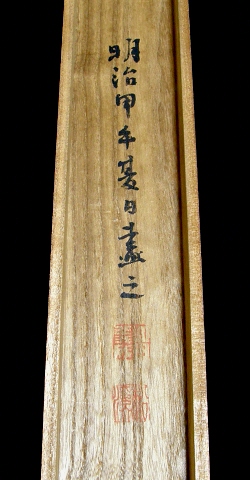 明治甲午夏日畫之